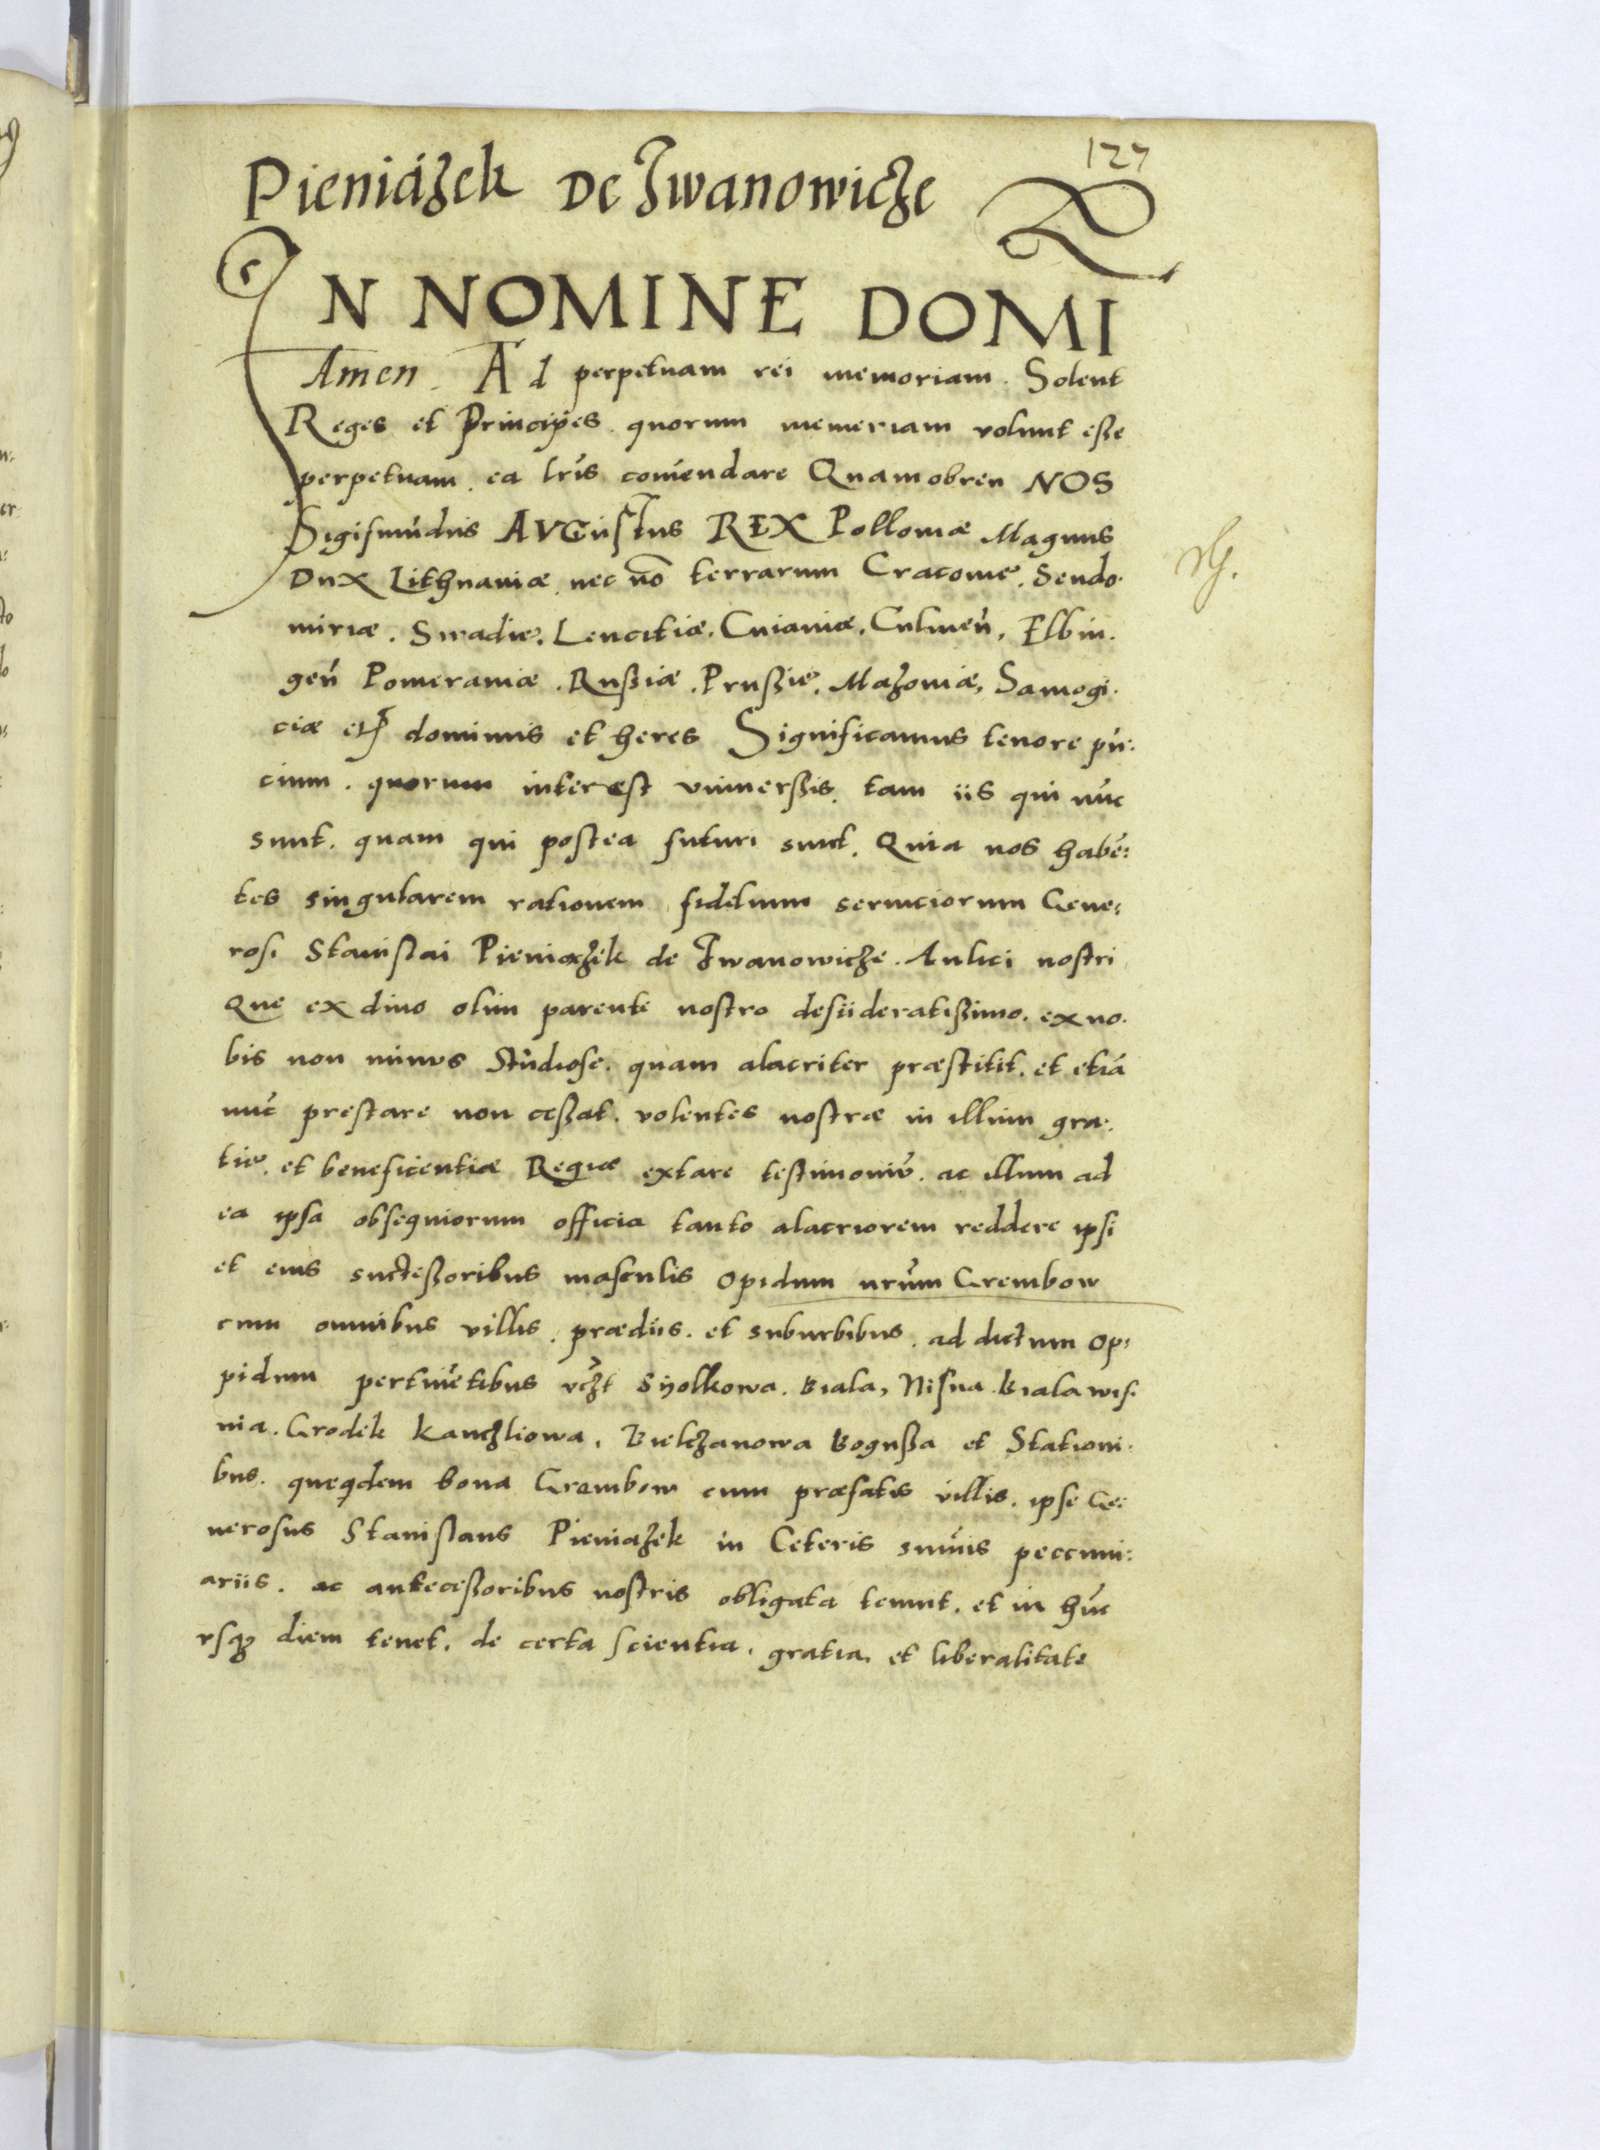 127
Pieniążek De Iwanowicze
IN NOMINE DOMI
Amen. Ad perpetuam rei memoriam. Solent
Reges et Principes quorum memeriam volunt eße
perpetuam. ea lr̃is com̃endare Quamobren NOS
Sigismũdus AVGustus REX Polloniæ Magnus
Dux Lithuaniæ. nec nõ terrarum Cracouię. Sendo
miriæ. Siradię. Lencitiæ. Cuiauiæ. Culmeñ. Elbin.
geñ Pomeraniæ. Rußiæ. Prußię. Mazouiæ. Samogi.
ciæ dominus et heres Significamus tenore pñ:
cium. quorum interest vniuerßis. tam iis qui nũc
sunt. quam qui postea futuri sunt. Quia nos habẽ:
tes singularem rationem fidelium seruiciorum Gene:
rosi Stanislai Pieniązek de Iwanowicze. Aulici nostri
Que ex diuo olim parente nostro desiideratißimo. ex no.
bis non minus Studiose. quam alacriter præstitit. et etiã
nũc prestare non ceßat. volentes nostræ in illum gra.
tię. et beneficentiæ Regiæ extare testimoniũ. ac illum ad
ea ipsa obsequiorum officia tanto alacriorem reddere ipsi
et eius succeßoribus masculis Opidum nr̃um Grembow
cum omnibus villis. prædiis. et suburbibus. ad dictum Op:
pidum pertinẽtibus vczt Syolkowa. Biala, Nisna Biala wis
nia. Grodek Kanczliowa. Bielczanowa Bogußa et Stationi.
bus. queqdem bona Grambow cum præfatis villis. ipse Ge:
nerosus Stanislaus Pieniazek in Ceteris sum̃is peccuni:
ariis. ac anteceßoribus nostris obligata tenuit. et in hũc
vsq3 diem tenet. de certa scientia. gratia. et liberalitate